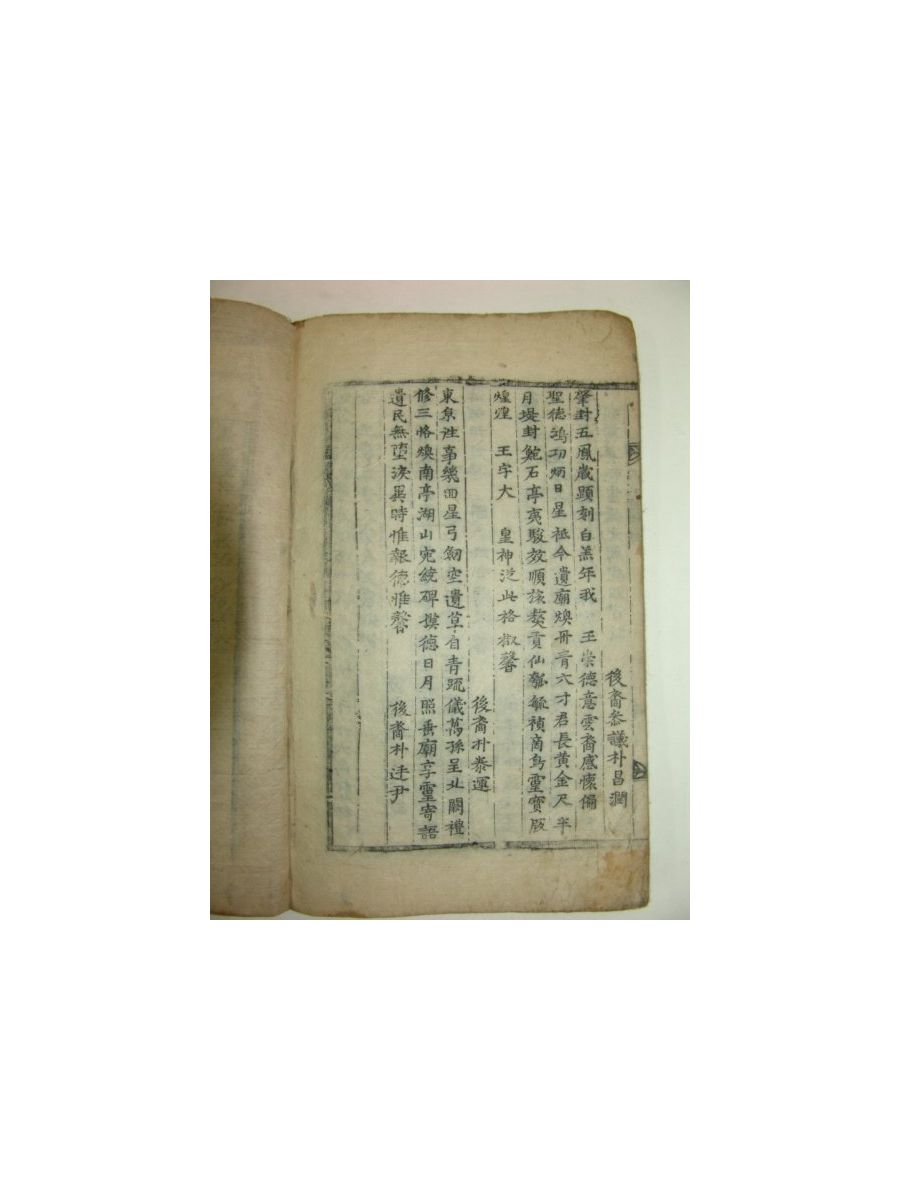 後裔叅議朴昌潤
肇封五鳳歲顯刻白羔年我 王崇德意雲裔感懷偏
聖德鴻功炳日星祗今遺廟煥丹靑六寸君長黃金尺半
月堤封鮑石亭夷駿效順旅獒貢仙瓢毓禎啇鳥靈寶瓜
煌煌 王字大 皇神泛此格椒馨
後裔朴泰運
東京往事幾回星弓劒空遺草自靑疏儀萬孫呈北闕禮
修三恪煥南亭湖山宛繞碑摸德日月照垂廟享靈寄語
遺民無墮淚異時惟報德惟馨
後裔朴廷尹